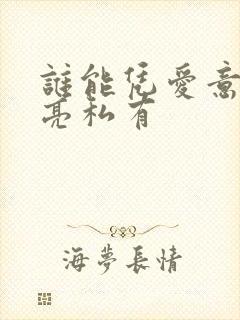 誰能凭愛意
亮私有
海夢長情